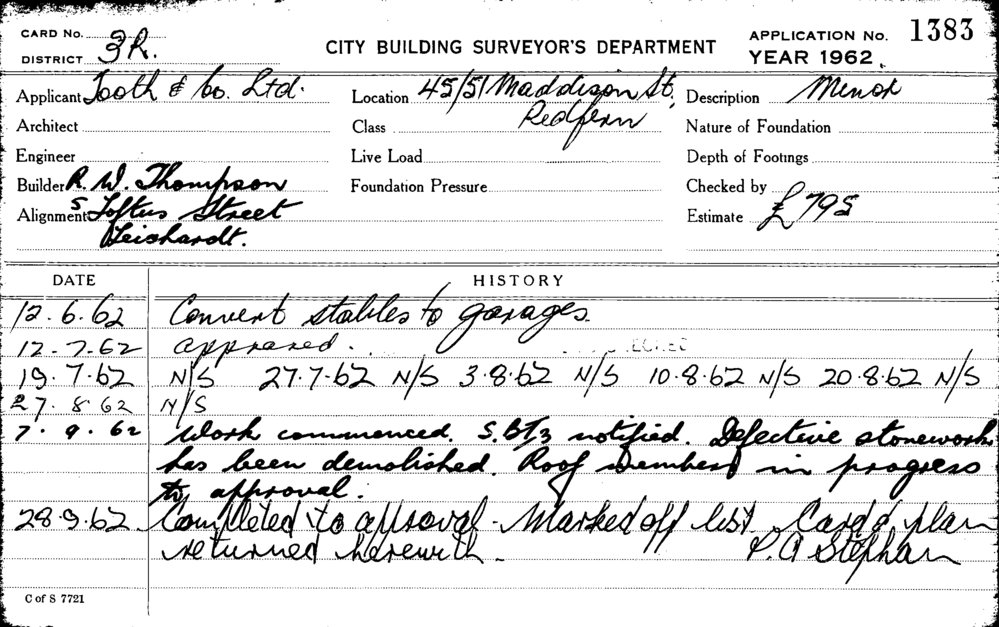 CARD No.
DISTRICT 3R.
CITY BUILDING SURVEYOR'S DEPARTMENT
APPLICATION No. 1383
YEAR 1962
Applicant Tooth & Co. Ltd.
Location 45/51 Maddison St,
Redfern
Description Minor
Architect
Class
Nature of Foundation
Engineer
Live Load
Depth of Footings
Builder R. W. Thompson
Foundation Pressure
Checked by
Alignment 5 Loftus Street
Leishardt.
Estimate £795
DATE HISTORY
12.6.62 Convert stables to garages.
12.7.62 approved.
19.7.62 N/S 27.7.62 N/S 3.8.62 N/S 10.8.62 N/S 20.8.62 N/S
27.8.62 N/S
7.9.62 Work commenced. notified. Defective stonework
has been demolished. Roof members in progress
to approval.
28.9.62 Completed to approval - Marked off list. Card & plan
returned herewith. P. A Stephan
C of S 7721